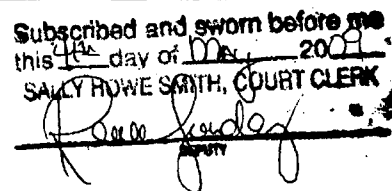 Subscribed and sworn before me
this 4th day of May 2009
SALLY HOWE SMITH, COURT CLERK
DEPUTY